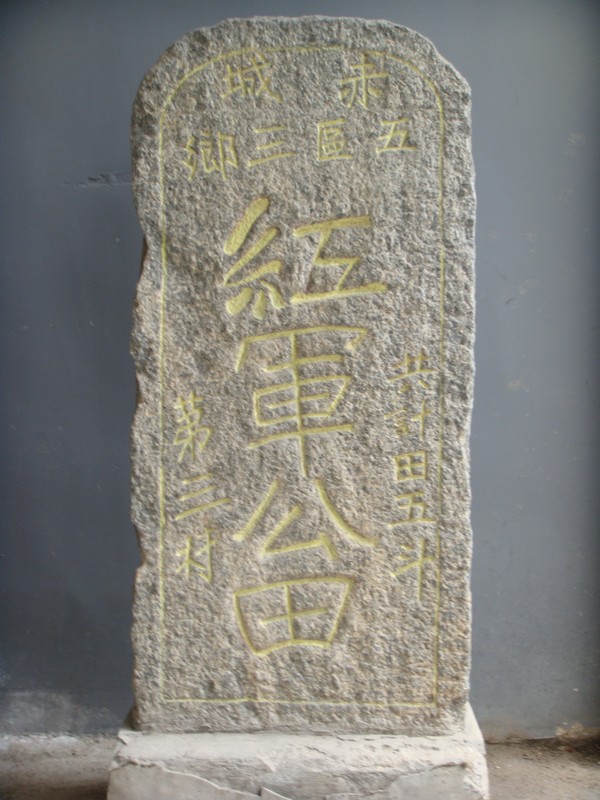 赤城
五區三鄉
共計田五斗
紅軍公田
第三村